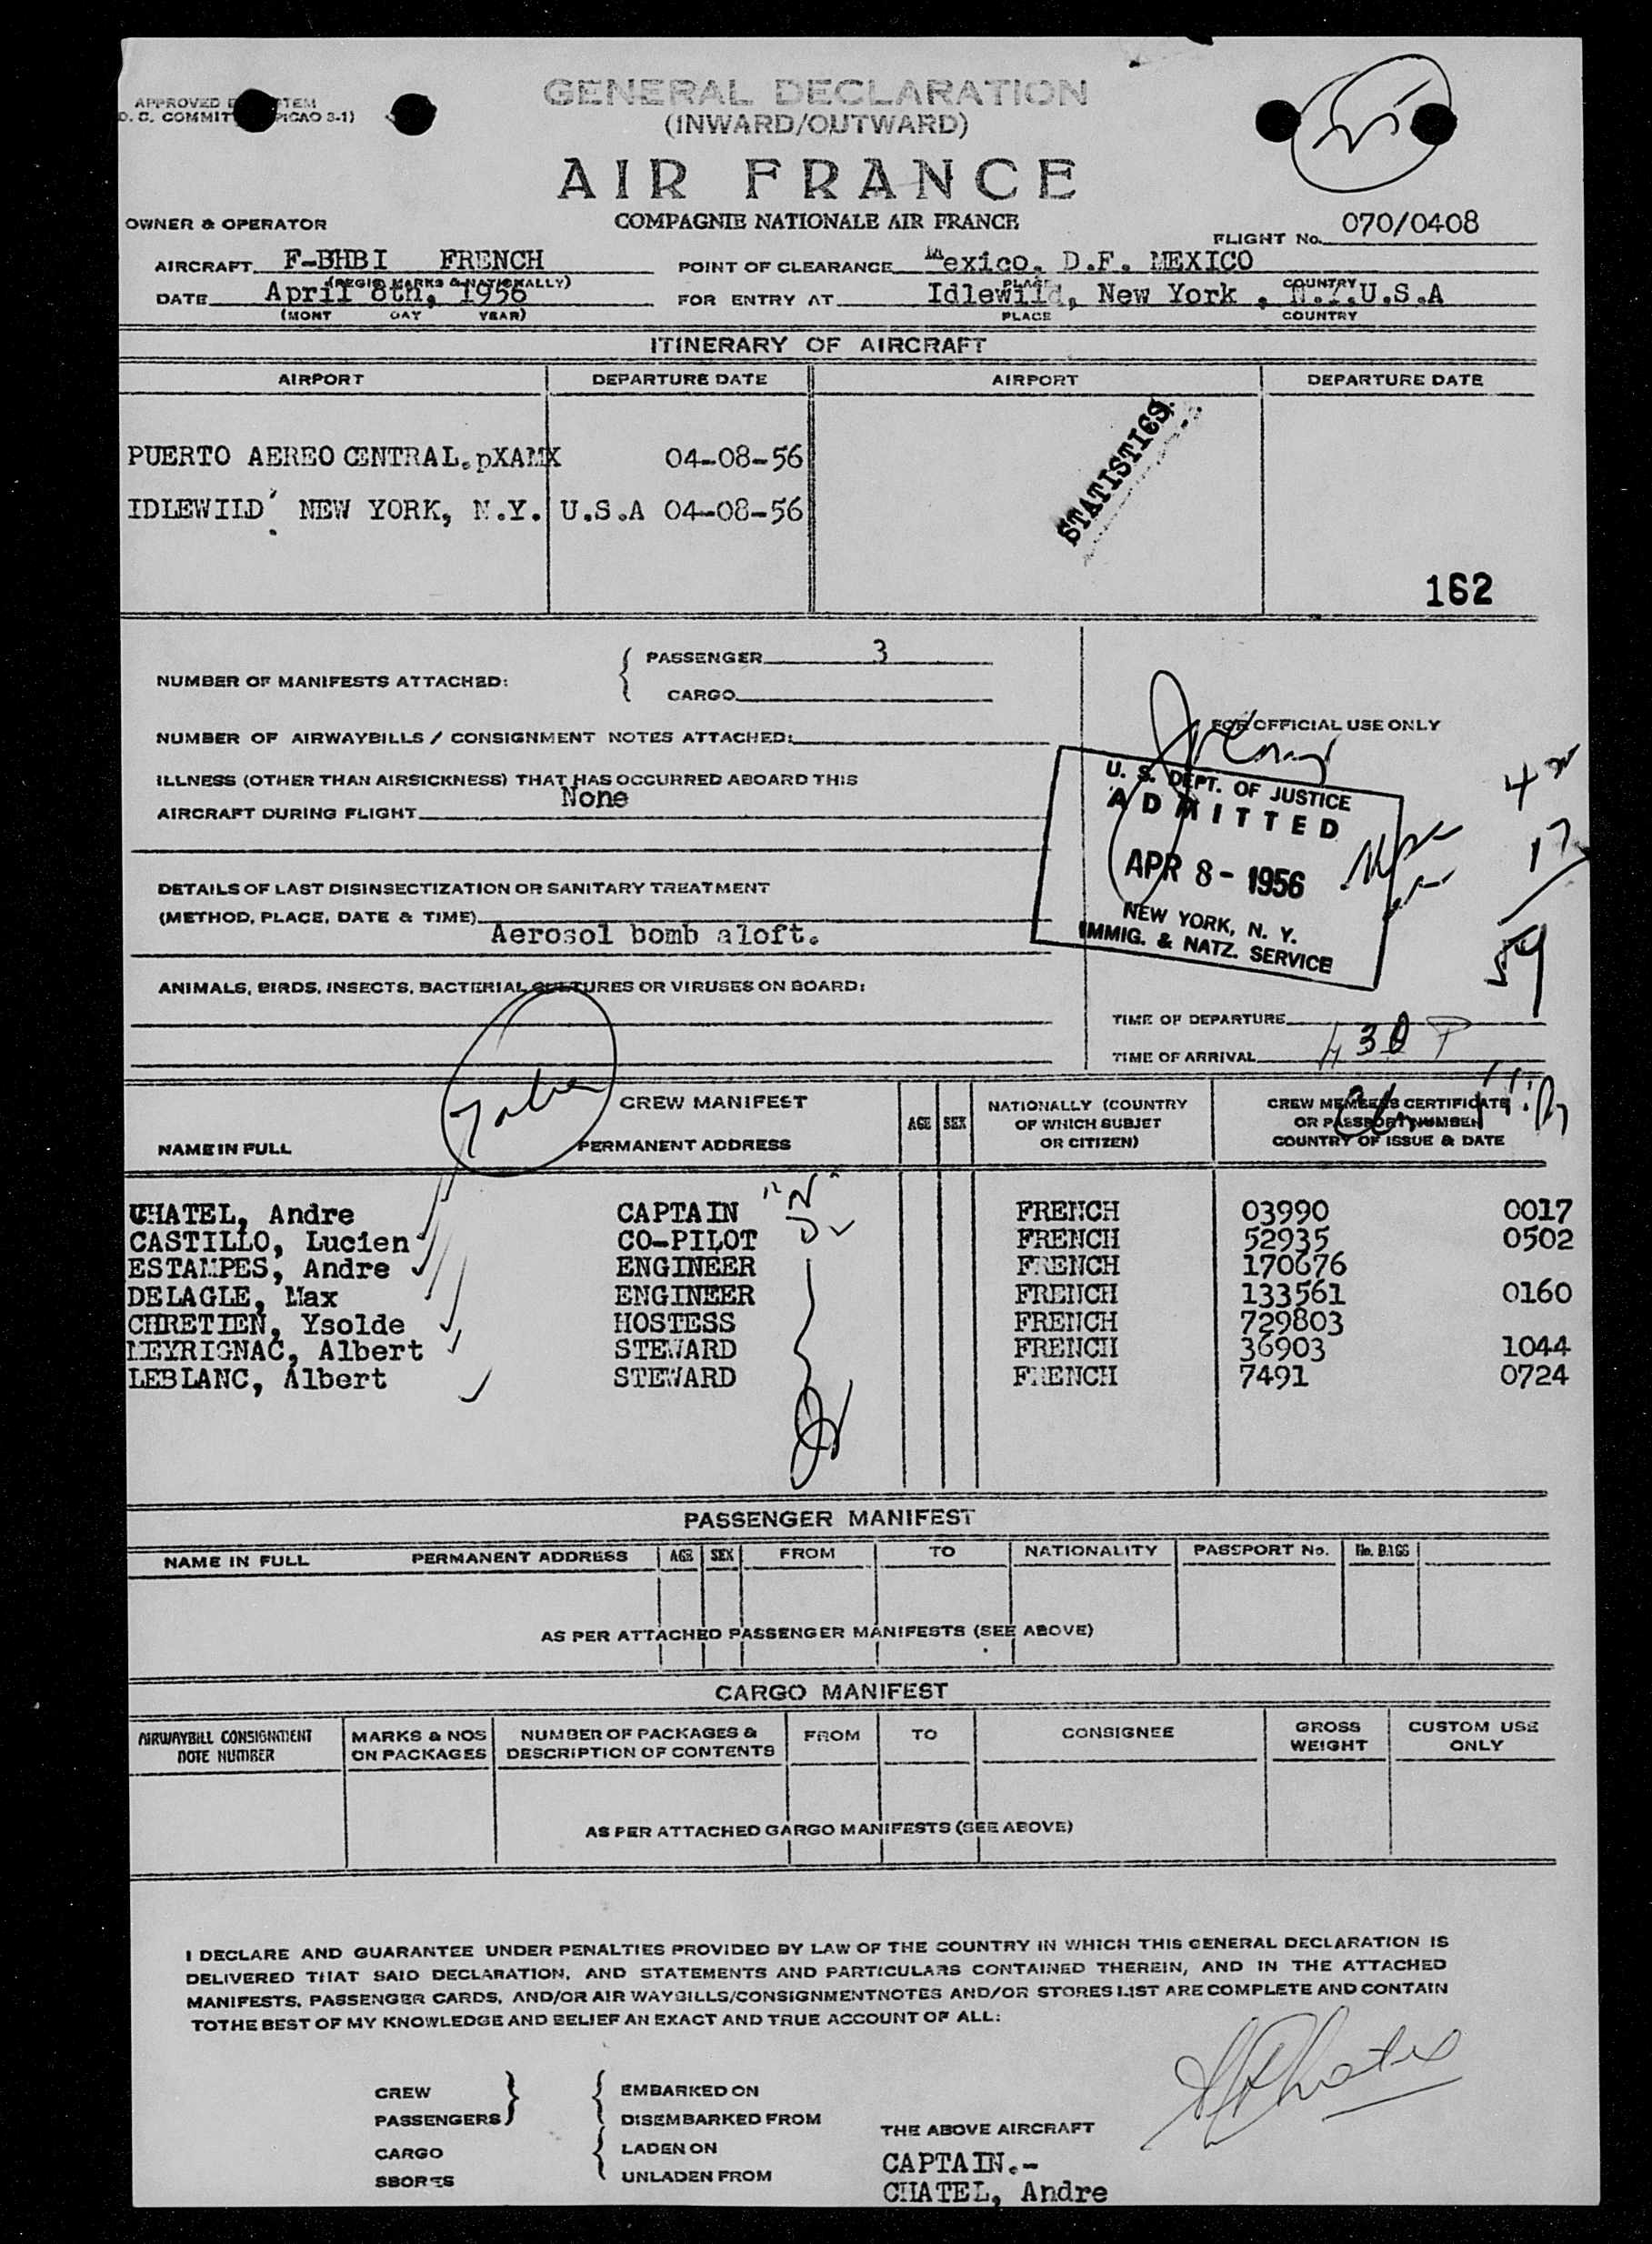 GENERAL DECLARATION
(INWARD/OUTWARD)
AIR FRANCE
COMPAGNIE NATIONALE AIR FRANCE
OWNER & OPERATOR
FLIGHT No. 070/0408
AIRCRAFT F-BHBI FRENCH POINT OF CLEARANCE Mexico. D.F. MEXICO
(REGIS MARKS & NATIONALLY) PLACE COUNTRY
DATE April 8th, 1956 FOR ENTRY AT Idlewild, New York , N.Y.U.S.A
(MONT DAY YEAR) PLACE COUNTRY
ITINERARY OF AIRCRAFT
AIRPORT DEPARTURE DATE AIRPORT DEPARTURE DATE
STATISTICS.
PUERTO AEREO CENTRAL.pXAMX 04-08-56
IDLEWILD NEW YORK, N.Y. U.S.A 04-08-56
162
NUMBER OF MANIFESTS ATTACHED:
PASSENGER 3
CARGO
NUMBER OF AIRWAYBILLS / CONSIGNMENT NOTES ATTACHED:
FOR OFFICIAL USE ONLY
ILLNESS (OTHER THAN AIRSICKNESS) THAT HAS OCCURRED ABOARD THIS
AIRCRAFT DURING FLIGHT None
U. S. DEPT. OF JUSTICE
ADMITTED
APR 8 - 1956
NEW YORK, N. Y.
IMMIG. & NATZ. SERVICE
42
17
59
DETAILS OF LAST DISINSECTIZATION OR SANITARY TREATMENT
(METHOD, PLACE, DATE & TIME)
Aerosol bomb aloft.
ANIMALS, BIRDS, INSECTS, BACTERIAL CULTURES OR VIRUSES ON BOARD:
TIME OF DEPARTURE
TIME OF ARRIVAL 430 P
CREW MANIFEST
NAME IN FULL PERMANENT ADDRESS AGE SEX NATIONALLY (COUNTRY
OF WHICH SUBJET
OR CITIZEN)
CREW MEMBERS CERTIFICATE
OR PASSPORT NUMBER
COUNTRY OF ISSUE & DATE
CHATEL, Andre CAPTAIN "N" FRENCH 03990 0017
CASTILLO, Lucien CO-PILOT FRENCH 52935 0502
ESTAMPES, Andre ENGINEER FRENCH 170676
DELAGLE, Max ENGINEER FRENCH 133561 0160
CHRETIEN, Ysolde HOSTESS FRENCH 729803
MEYRIGNAC, Albert STEWARD FRENCH 36903 1044
LEBLANC, Albert STEWARD FRENCH 7491 0724
PASSENGER MANIFEST
NAME IN FULL PERMANENT ADDRESS AGE SEX FROM TO NATIONALITY PASSPORT No. No. BAGS
AS PER ATTACHED PASSENGER MANIFESTS (SEE ABOVE)
CARGO MANIFEST
AIRWAYBILL CONSIGNMENT
NOTE NUMBER
MARKS & NOS
ON PACKAGES
NUMBER OF PACKAGES &
DESCRIPTION OF CONTENTS
FROM TO CONSIGNEE
GROSS
WEIGHT
CUSTOM USE
ONLY
AS PER ATTACHED GARGO MANIFESTS (SEE ABOVE)
I DECLARE AND GUARANTEE UNDER PENALTIES PROVIDED BY LAW OF THE COUNTRY IN WHICH THIS GENERAL DECLARATION IS
DELIVERED THAT SAID DECLARATION, AND STATEMENTS AND PARTICULARS CONTAINED THEREIN, AND IN THE ATTACHED
MANIFESTS, PASSENGER CARDS, AND/OR AIR WAYBILLS/CONSIGNMENTNOTES AND/OR STORES LIST ARE COMPLETE AND CONTAIN
TOTHE BEST OF MY KNOWLEDGE AND BELIEF AN EXACT AND TRUE ACCOUNT OF ALL:
CREW EMBARKED ON
PASSENGERS DISEMBARKED FROM
CARGO LADEN ON
SBORES UNLADEN FROM
THE ABOVE AIRCRAFT
CAPTAIN.-
CHATEL, Andre